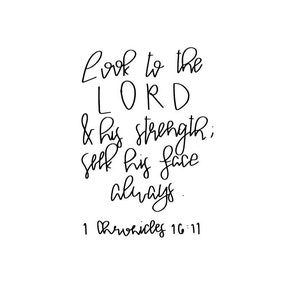 Look to the
LORD
& his strength;
seek his face
always.
1 Chronicles 16:11